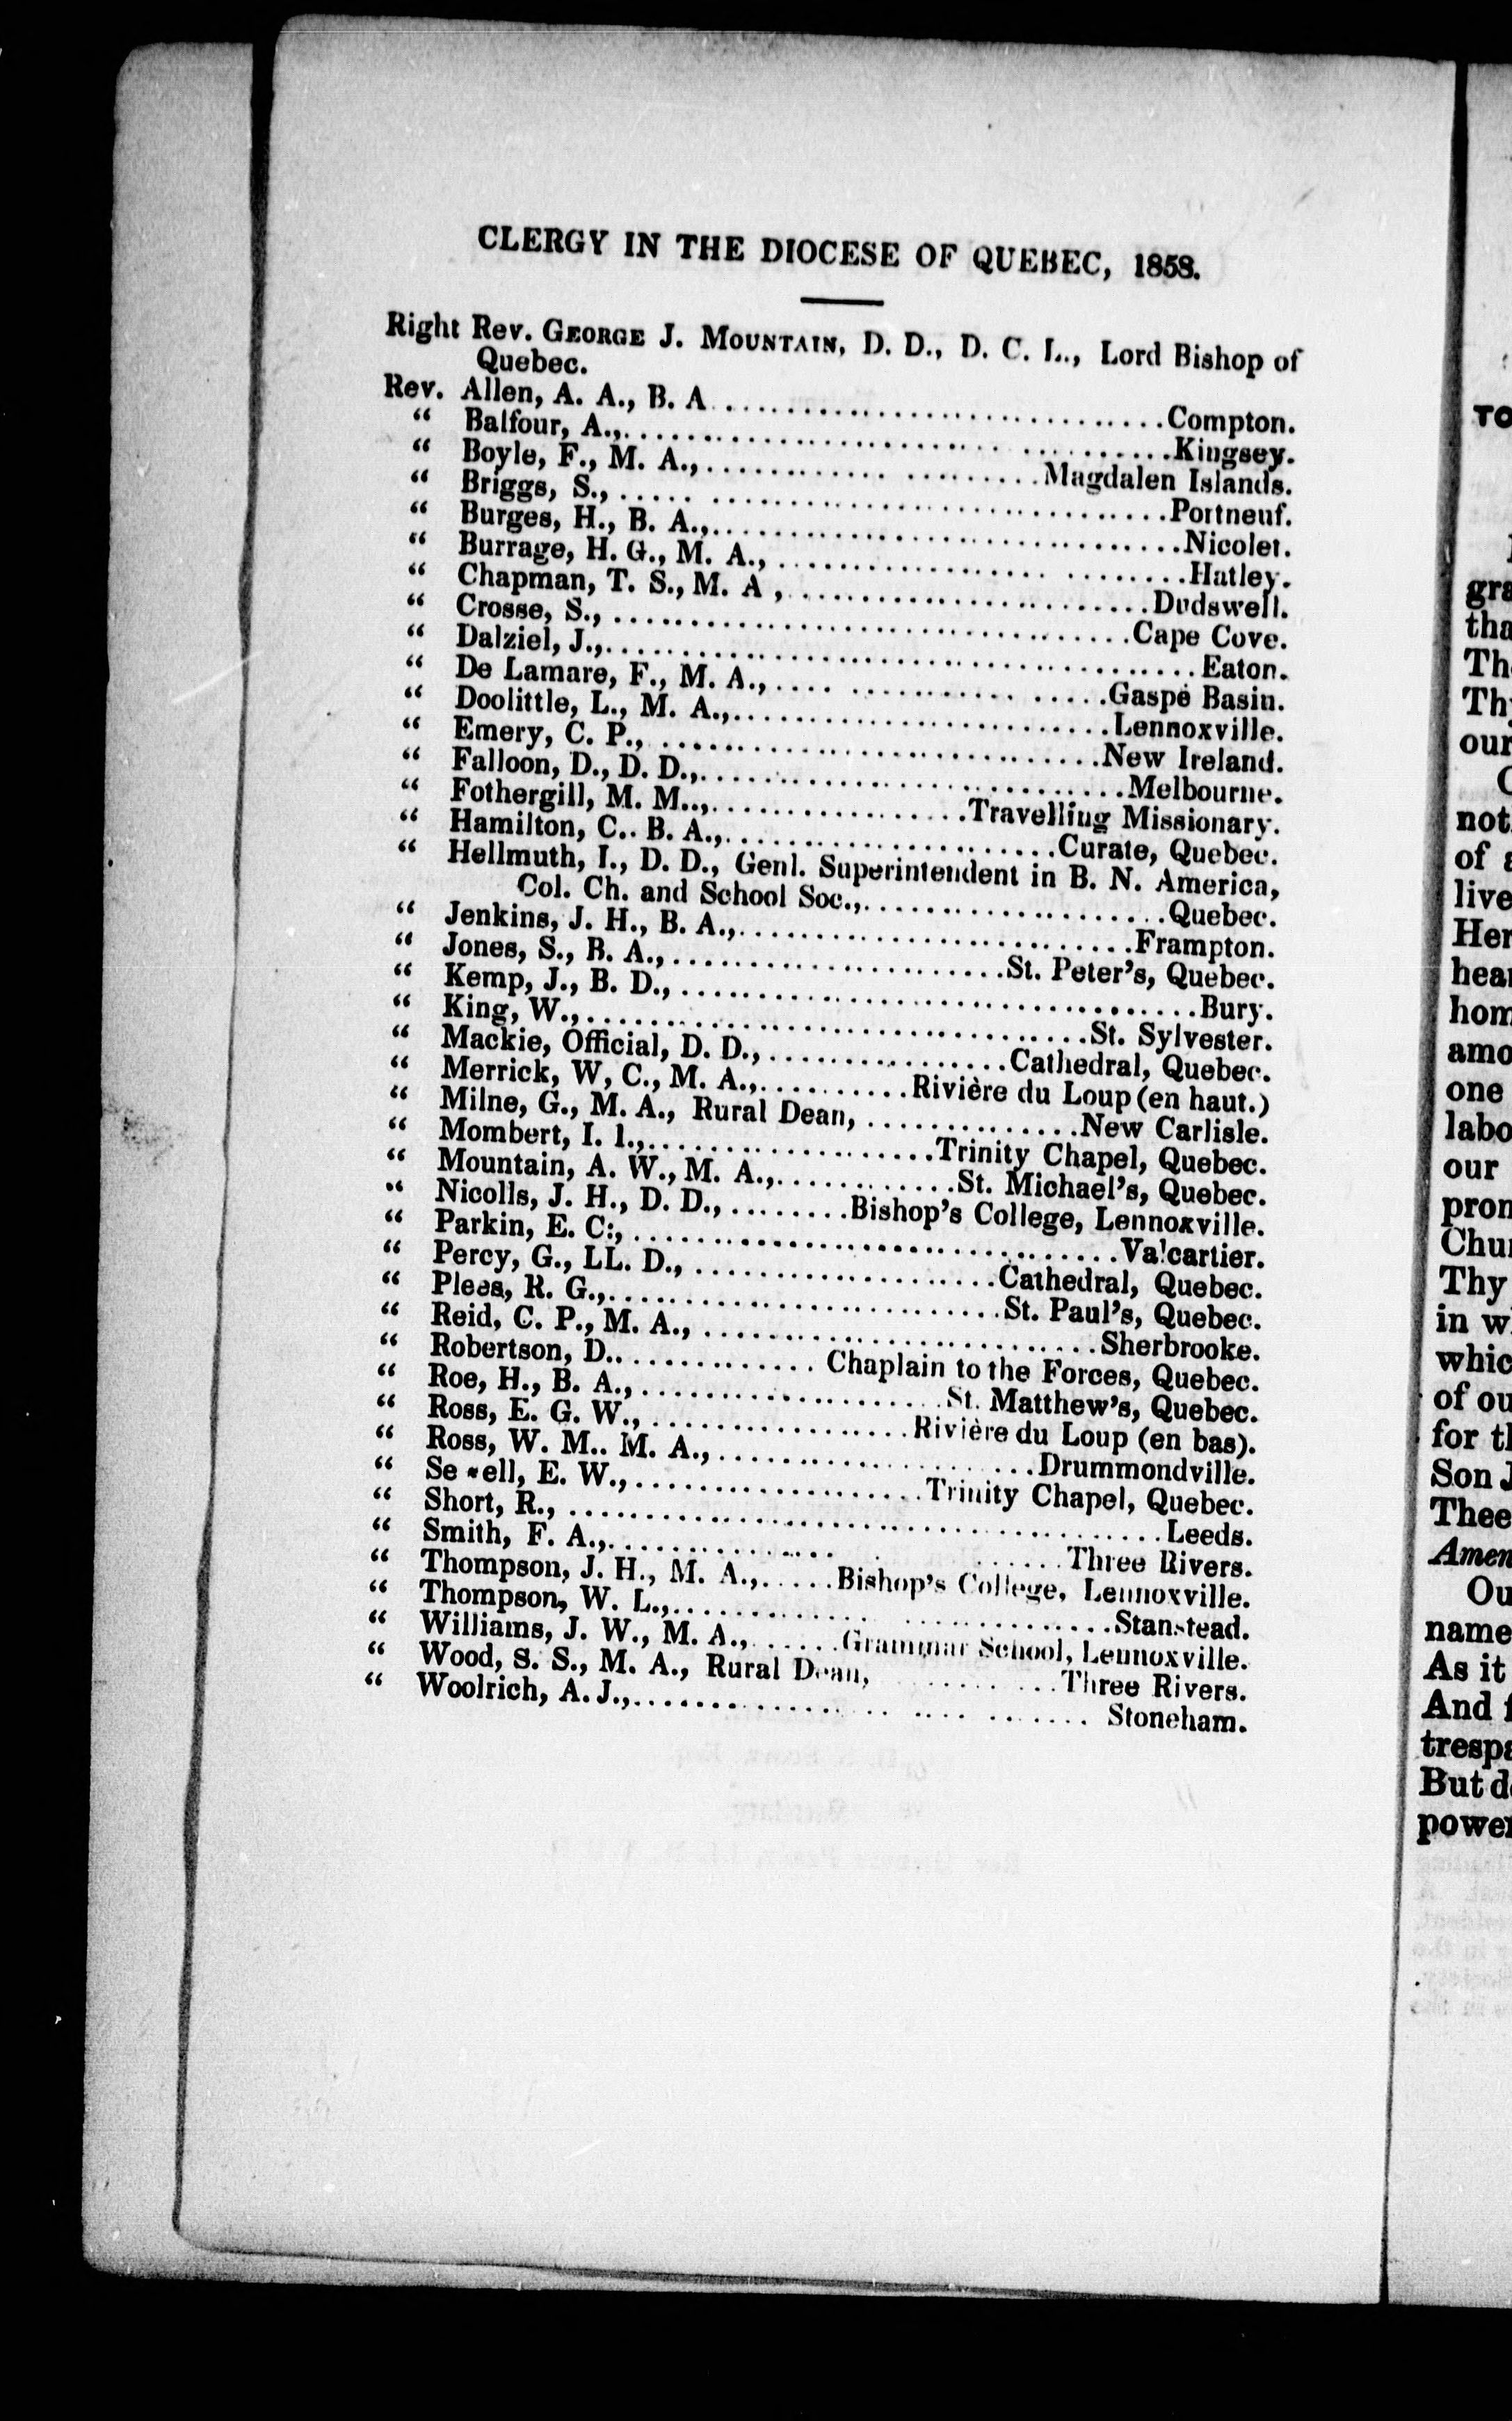 CLERGY IN THE DIOCESE OF QUEBEC, 1858.
Right Rev. GEORGE J. MOUNTAIN, D. D., D. C. L., Lord Bishop of
Quebec.
Rev. Allen, A. A., B. A..............................Compton.
“ Balfour, A.,..............................Kingsey.
“ Boyle, F., M. A.,..............................Magdalen Islands.
“ Briggs, S.,..............................Portneuf.
“ Burges, H., B. A.,..............................Nicolet.
“ Burrage, H. G., M. A.,..............................Hatley.
“ Chapman, T. S., M. A ,..............................Dudswell.
“ Crosse, S.,..............................Cape Cove.
“ Dalziel, J.,..............................Eaton.
“ De Lamare, F., M. A.,....................Gaspé Basin.
“ Doolittle, L., M. A.,..............................Lennoxville.
“ Emery, C. P.,..............................New Ireland.
“ Falloon, D., D. D.,..............................Melbourne.
“ Fothergill, M. M..,..................Travelling Missionary.
“ Hamilton, C.. B. A.,......................Curate, Quebec.
“ Hellmuth, I., D. D., Genl. Superintendent in B. N. America,
Col. Ch. and School Soc.,....................Quebec.
“ Jenkins, J. H., B. A.,..........................Frampton.
“ Jones, S., B. A.,......................St. Peter’s, Quebec.
“ Kemp, J., B. D.,..............................Bury.
“ King, W.,..............................St. Sylvester.
“ Mackie, Official, D. D.,................Cathedral, Quebec.
“ Merrick, W, C., M. A.,..........Rivière du Loup (en haut.)
“ Milne, G., M. A., Rural Dean,..............New Carlisle.
“ Mombert, I. I.,...................Trinity Chapel, Quebec.
“ Mountain, A. W., M. A.,............St. Michael’s, Quebec.
“ Nicolls, J. H., D. D.,........Bishop’s College, Lennoxville.
“ Parkin, E. C:,..............................Valcartier.
“ Percy, G., LL. D.,....................Cathedral, Quebec.
“ Plees, R. G.,..........................St. Paul’s, Quebec.
“ Reid, C. P., M. A.,..........................Sherbrooke.
“ Robertson, D..............Chaplain to the Forces, Quebec.
“ Roe, H., B. A.,....................St. Matthew’s, Quebec.
“ Ross, E. G. W.,.................Rivière du Loup (en bas).
“ Ross, W. M.. M. A.,.....................Drummondville.
“ Sewell, E. W.,...................Trinity Chapel, Quebec.
“ Short, R.,..............................Leeds.
“ Smith, F. A.,....................Three Rivers.
“ Thompson, J. H., M. A.,.....Bishop’s College, Lennoxville.
“ Thompson, W. L.,..........................Stanstead.
“ Williams, J. W., M. A.,......Grammar School, Lennoxville.
“ Wood, S. S., M. A., Rural Dean,..........Three Rivers.
“ Woolrich, A. J.,..........................Stoneham.
TO
gra
tha
Th
Thy
our
not
of a
live
Her
hear
hom
amo
one
labo
our
pron
Chur
Thy
in w
whic
of ou
for th
Son J
Thee
Amen
Ou
name
As it
And f
trespa
But de
power